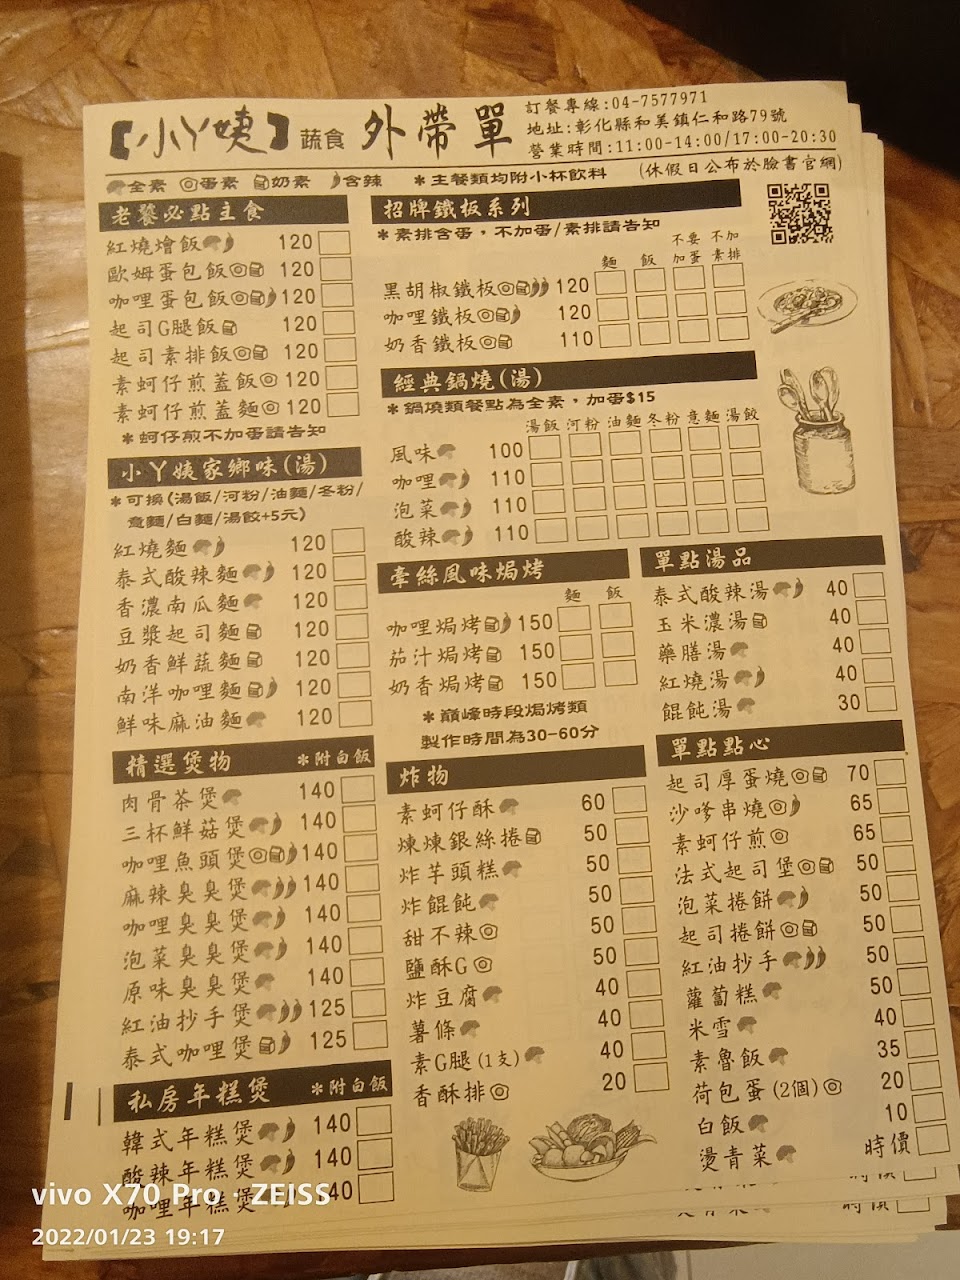 【小丫姨】蔬食 外帶單
訂餐專線:04-7577971
地址:彰化縣和美鎮仁和路79號
營業時間:11:00-14:00/17:00-20:30
(休假日公布於臉書官網)
全素 蛋素 奶素 含辣 *主餐類均附小杯飲料
老饕必點主食
紅燒燴飯 120
歐姆蛋包飯 120
咖哩蛋包飯 120
起司G腿飯 120
起司素排飯 120
素蚵仔煎蓋飯 120
素蚵仔煎蓋麵 120
*蚵仔煎不加蛋請告知
小丫姨家鄉味(湯)
*可換(湯飯/河粉/油麵/冬粉/
意麵/白麵/湯餃+5元)
紅燒麵 120
泰式酸辣麵 120
香濃南瓜麵 120
豆漿起司麵 120
奶香鮮蔬麵 120
南洋咖哩麵 120
鮮味麻油麵 120
精選煲物 *附白飯
肉骨茶煲 140
三杯鮮菇煲 140
咖哩魚頭煲 140
麻辣臭臭煲 140
咖哩臭臭煲 140
泡菜臭臭煲 140
原味臭臭煲 140
紅油抄手煲 125
泰式咖哩煲 125
私房年糕煲 *附白飯
韓式年糕煲 140
酸辣年糕煲 140
咖哩年糕煲 140
招牌鐵板系列
*素排含蛋，不加蛋/素排請告知
麵 飯 不要加蛋 不加素排
黑胡椒鐵板 120
咖哩鐵板 120
奶香鐵板 110
經典鍋燒(湯)
*鍋燒類餐點為全素，加蛋$15
湯飯 河粉 油麵 冬粉 意麵 湯餃
風味 100
咖哩 110
泡菜 110
酸辣 110
牽絲風味焗烤
麵 飯
咖哩焗烤 150
茄汁焗烤 150
奶香焗烤 150
*巔峰時段焗烤類
製作時間為30-60分
炸物
素蚵仔酥 60
煉煉銀絲捲 50
炸芋頭糕 50
炸餛飩 50
甜不辣 50
鹽酥G 50
炸豆腐 40
薯條 40
素G腿(1支) 40
香酥排 20
單點湯品
泰式酸辣湯 40
玉米濃湯 40
藥膳湯 40
紅燒湯 40
餛飩湯 30
單點點心
起司厚蛋燒 70
沙嗲串燒 65
素蚵仔煎 65
法式起司堡 50
泡菜捲餅 50
起司捲餅 50
紅油抄手 50
蘿蔔糕 50
米雪 40
素魯飯 35
荷包蛋(2個) 20
白飯 10
燙青菜 時價
時價
vivo X70 Pro · ZEISS
2022/01/23 19:17